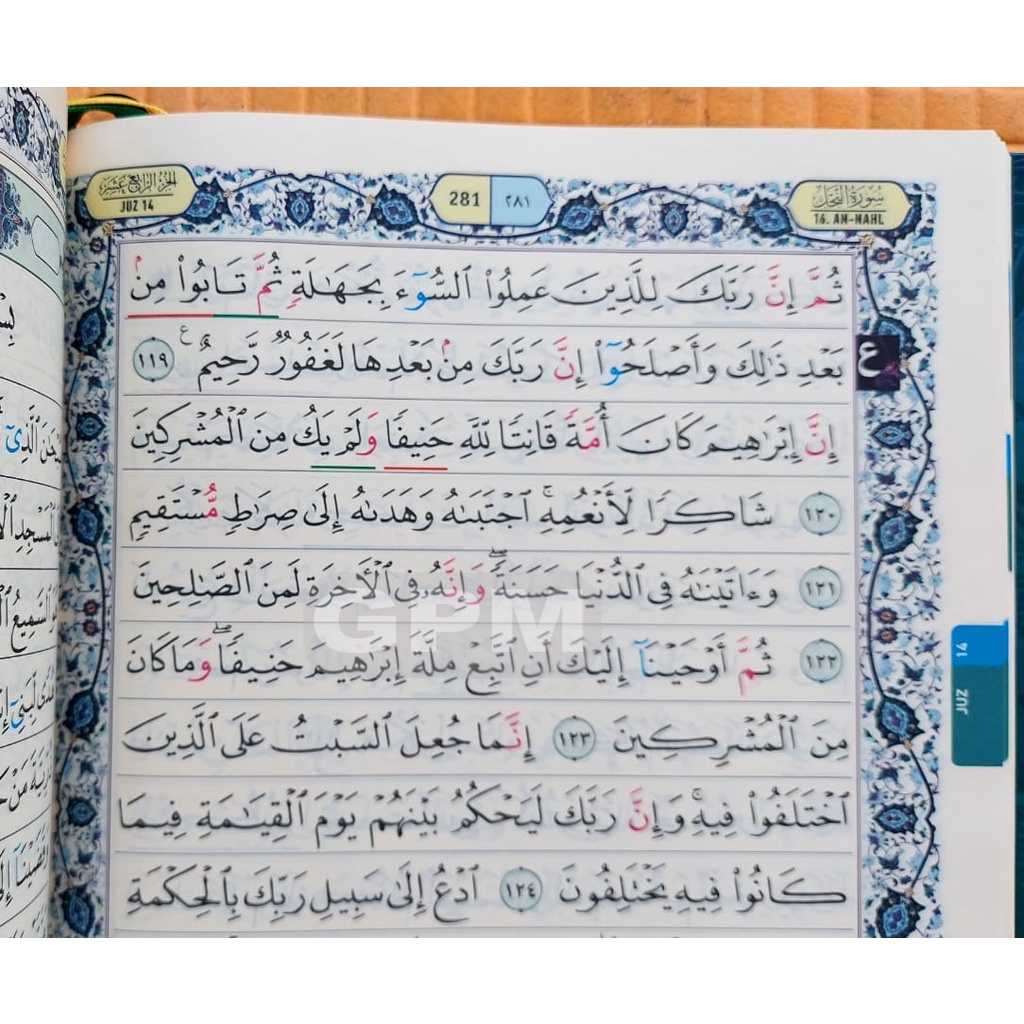 الجزء الرابع عشر
JUZ 14
281 ٢٨١
سورة النحل
16. AN-NAHL
ثُمَّ إِنَّ رَبَّكَ لِلَّذِينَ عَمِلُوا۟ ٱلسُّوٓءَ بِجَهَٰلَةٍ ثُمَّ تَابُوا۟ مِنۢ
بَعْدِ ذَٰلِكَ وَأَصْلَحُوٓا۟ إِنَّ رَبَّكَ مِنۢ بَعْدِهَا لَغَفُورٌ رَّحِيمٌ ١١٩
ع
إِنَّ إِبْرَٰهِيمَ كَانَ أُمَّةً قَانِتًا لِّلَّهِ حَنِيفًا وَلَمْ يَكُ مِنَ ٱلْمُشْرِكِينَ
١٢٠ شَاكِرًا لِّأَنْعُمِهِ ۚ ٱجْتَبَىٰهُ وَهَدَىٰهُ إِلَىٰ صِرَٰطٍ مُّسْتَقِيمٍ
١٢١ وَءَاتَيْنَٰهُ فِى ٱلدُّنْيَا حَسَنَةً ۖ وَإِنَّهُۥ فِى ٱلْءَاخِرَةِ لَمِنَ ٱلصَّٰلِحِينَ
١٢٢ ثُمَّ أَوْحَيْنَآ إِلَيْكَ أَنِ ٱتَّبِعْ مِلَّةَ إِبْرَٰهِيمَ حَنِيفًا ۖ وَمَا كَانَ
مِنَ ٱلْمُشْرِكِينَ ١٢٣ إِنَّمَا جُعِلَ ٱلسَّبْتُ عَلَى ٱلَّذِينَ
ٱخْتَلَفُوا۟ فِيهِ ۚ وَإِنَّ رَبَّكَ لَيَحْكُمُ بَيْنَهُمْ يَوْمَ ٱلْقِيَٰمَةِ فِيمَا
كَانُوا۟ فِيهِ يَخْتَلِفُونَ ١٢٤ ٱدْعُ إِلَىٰ سَبِيلِ رَبِّكَ بِٱلْحِكْمَةِ
GPM
JUZ 14